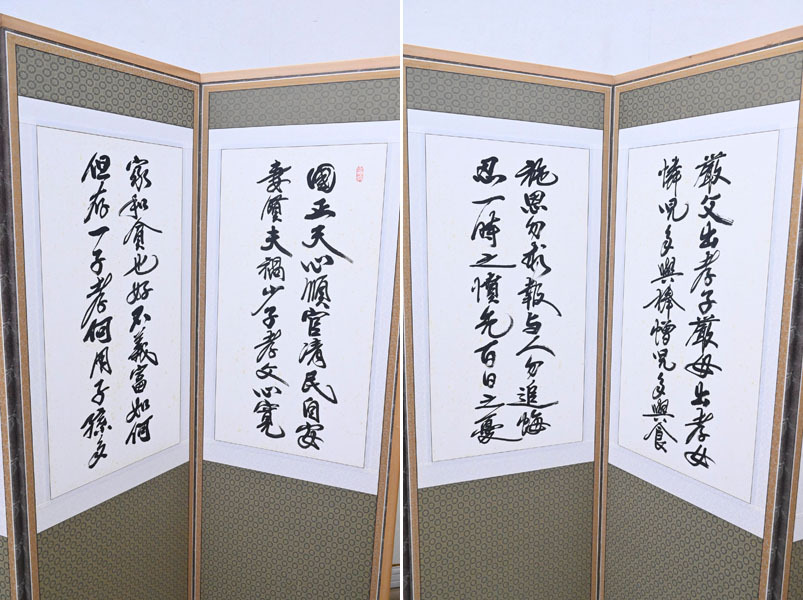 國正天心順官清民自安
妻賢夫禍少子孝父心寬
家和貧也好不義富如何
但存一子孝何用子孫多
嚴父出孝子嚴母出孝女
憐兒多與棒憎兒多與食
施恩勿求報与人勿追悔
忍一時之憤免百日之憂